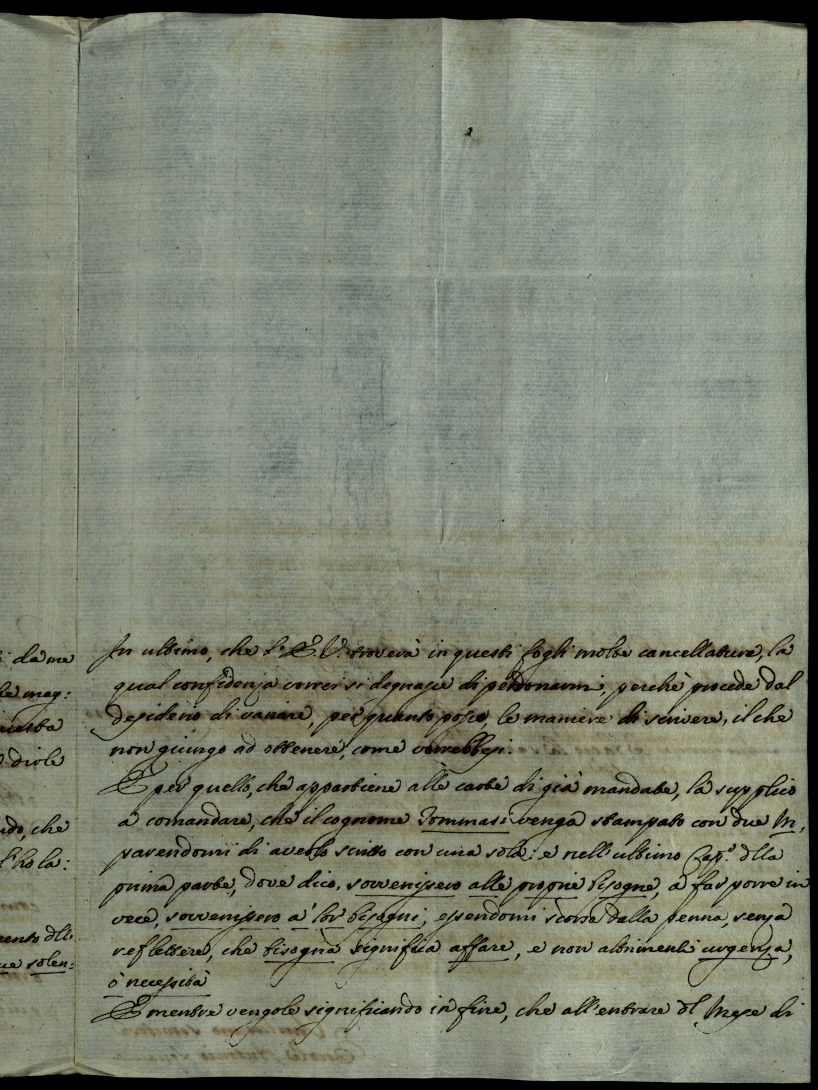 : da me
la mag:
questa
dirle
ndo, che
l'ho la:
mento dell:
ue solen:
In ultimo, che l'E. V. troverà in questi fogli molte cancellature, la
qual confidenza vorrei si degnasse di perdonarmi, perchè procede dal
desiderio di variare, per quanto posso, le maniere di scrivere, il che
non giungo ad ottenere, come vorrebbesi.
E per quello, che appartiene alle carte di già mandate, la supplico
a comandare, che il cognome Tommasi venga stampato con due m,
parendomi di averlo scritto con una sola: e nell'ultimo Cap.º della
prima parte, dove dico, sovvenissero alle proprie bisogne, a far porre in
vece, sovvenissero a' lor bisogni, essendomi scorsa dalla penna, senza
reflettere, che bisogna significa affare, e non altrimenti urgenza,
ò necessità
E mentre vengole significando in fine, che all'entrare del Mese di